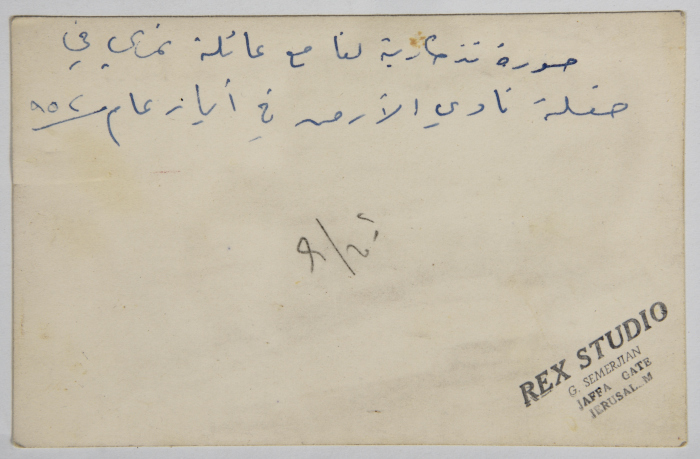 صورة تذكارية لنا مع عائلة نمري في
حفلة نادي الأرمن في أيار عام ٩٥٢
REX STUDIO
G. SEMERJIAN
JAFFA GATE
JERUSAL_M